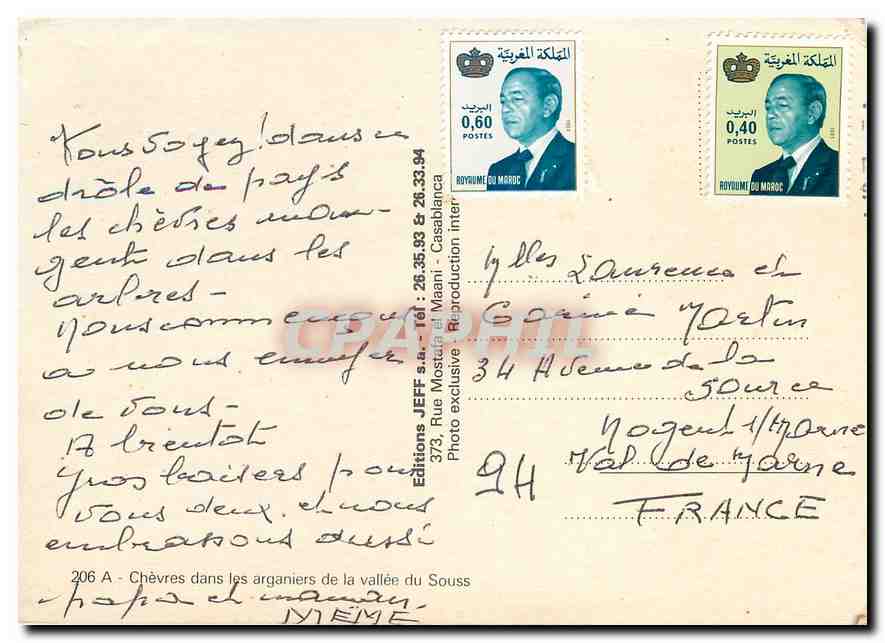 Vous voyez ! dans ce
drôle de pays
les chèvres man-
gent dans les
arbres -
Nous commençons
a nous ennuyer
de vous -
A bientot
Gros baisers pour
vous deux et nous
embrassons aussi
206 A - Chèvres dans les arganiers de la vallée du Souss
papa et maman.
MÉMÉ
Editions JEFF s.a. - Tél : 26.35.93 & 26.33.94
373, Rue Mostafa el Maani - Casablanca
Photo exclusive Reproduction inter
CPAPHIL
المملكة المغربية
البريد
0,60
POSTES
1981
ROYAUME DU MAROC
المملكة المغربية
البريد
0,40
POSTES
1981
ROYAUME DU MAROC
Mlles Laurence et
Corinne Martin
34 Avenue de la
Source
Nogent s/Marne
Val de Marne
94
FRANCE